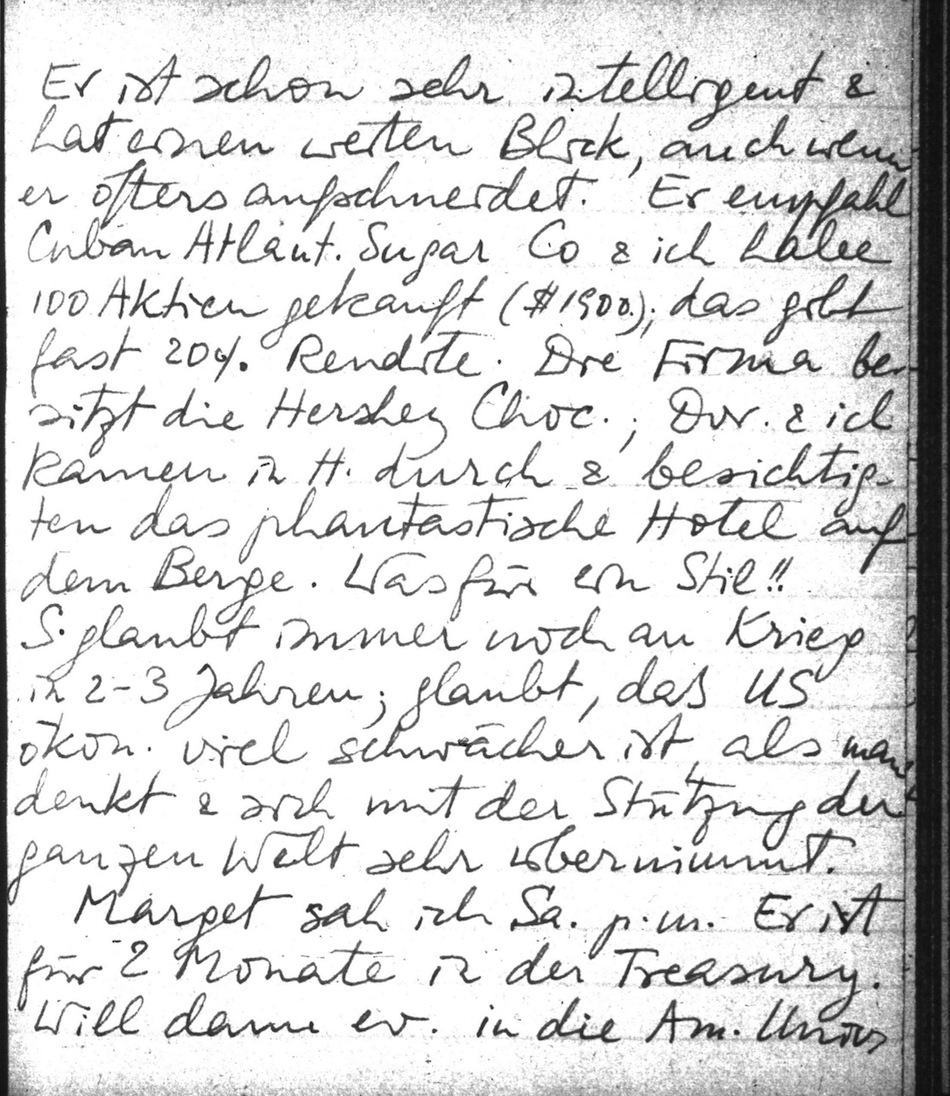 Er ist schon sehr intelligent &
hat einen weiten Blick, auch wenn
er öfters aufschneidet. Er empfahl
Cuban Atlant. Sugar Co & ich habe
100 Aktien gekauft ($1900.); das gibt
fast 20% Rendite. Die Firma be-
sitzt die Hershey Choc.; Dor. & ich
kamen in H. durch & besichtig-
ten das phantastische Hotel auf
dem Berge. Was für ein Stil!!
S. glaubt immer noch an Krieg
in 2-3 Jahren; glaubt, daß US
ökon. viel schwächer ist, als man
denkt & sich mit der Stützung der
ganzen Welt sehr übernimmt.
Marget sah ich Sa. p.m. Er ist
für 2 Monate in der Treasury.
Will dann ev. in die Am. Univ.